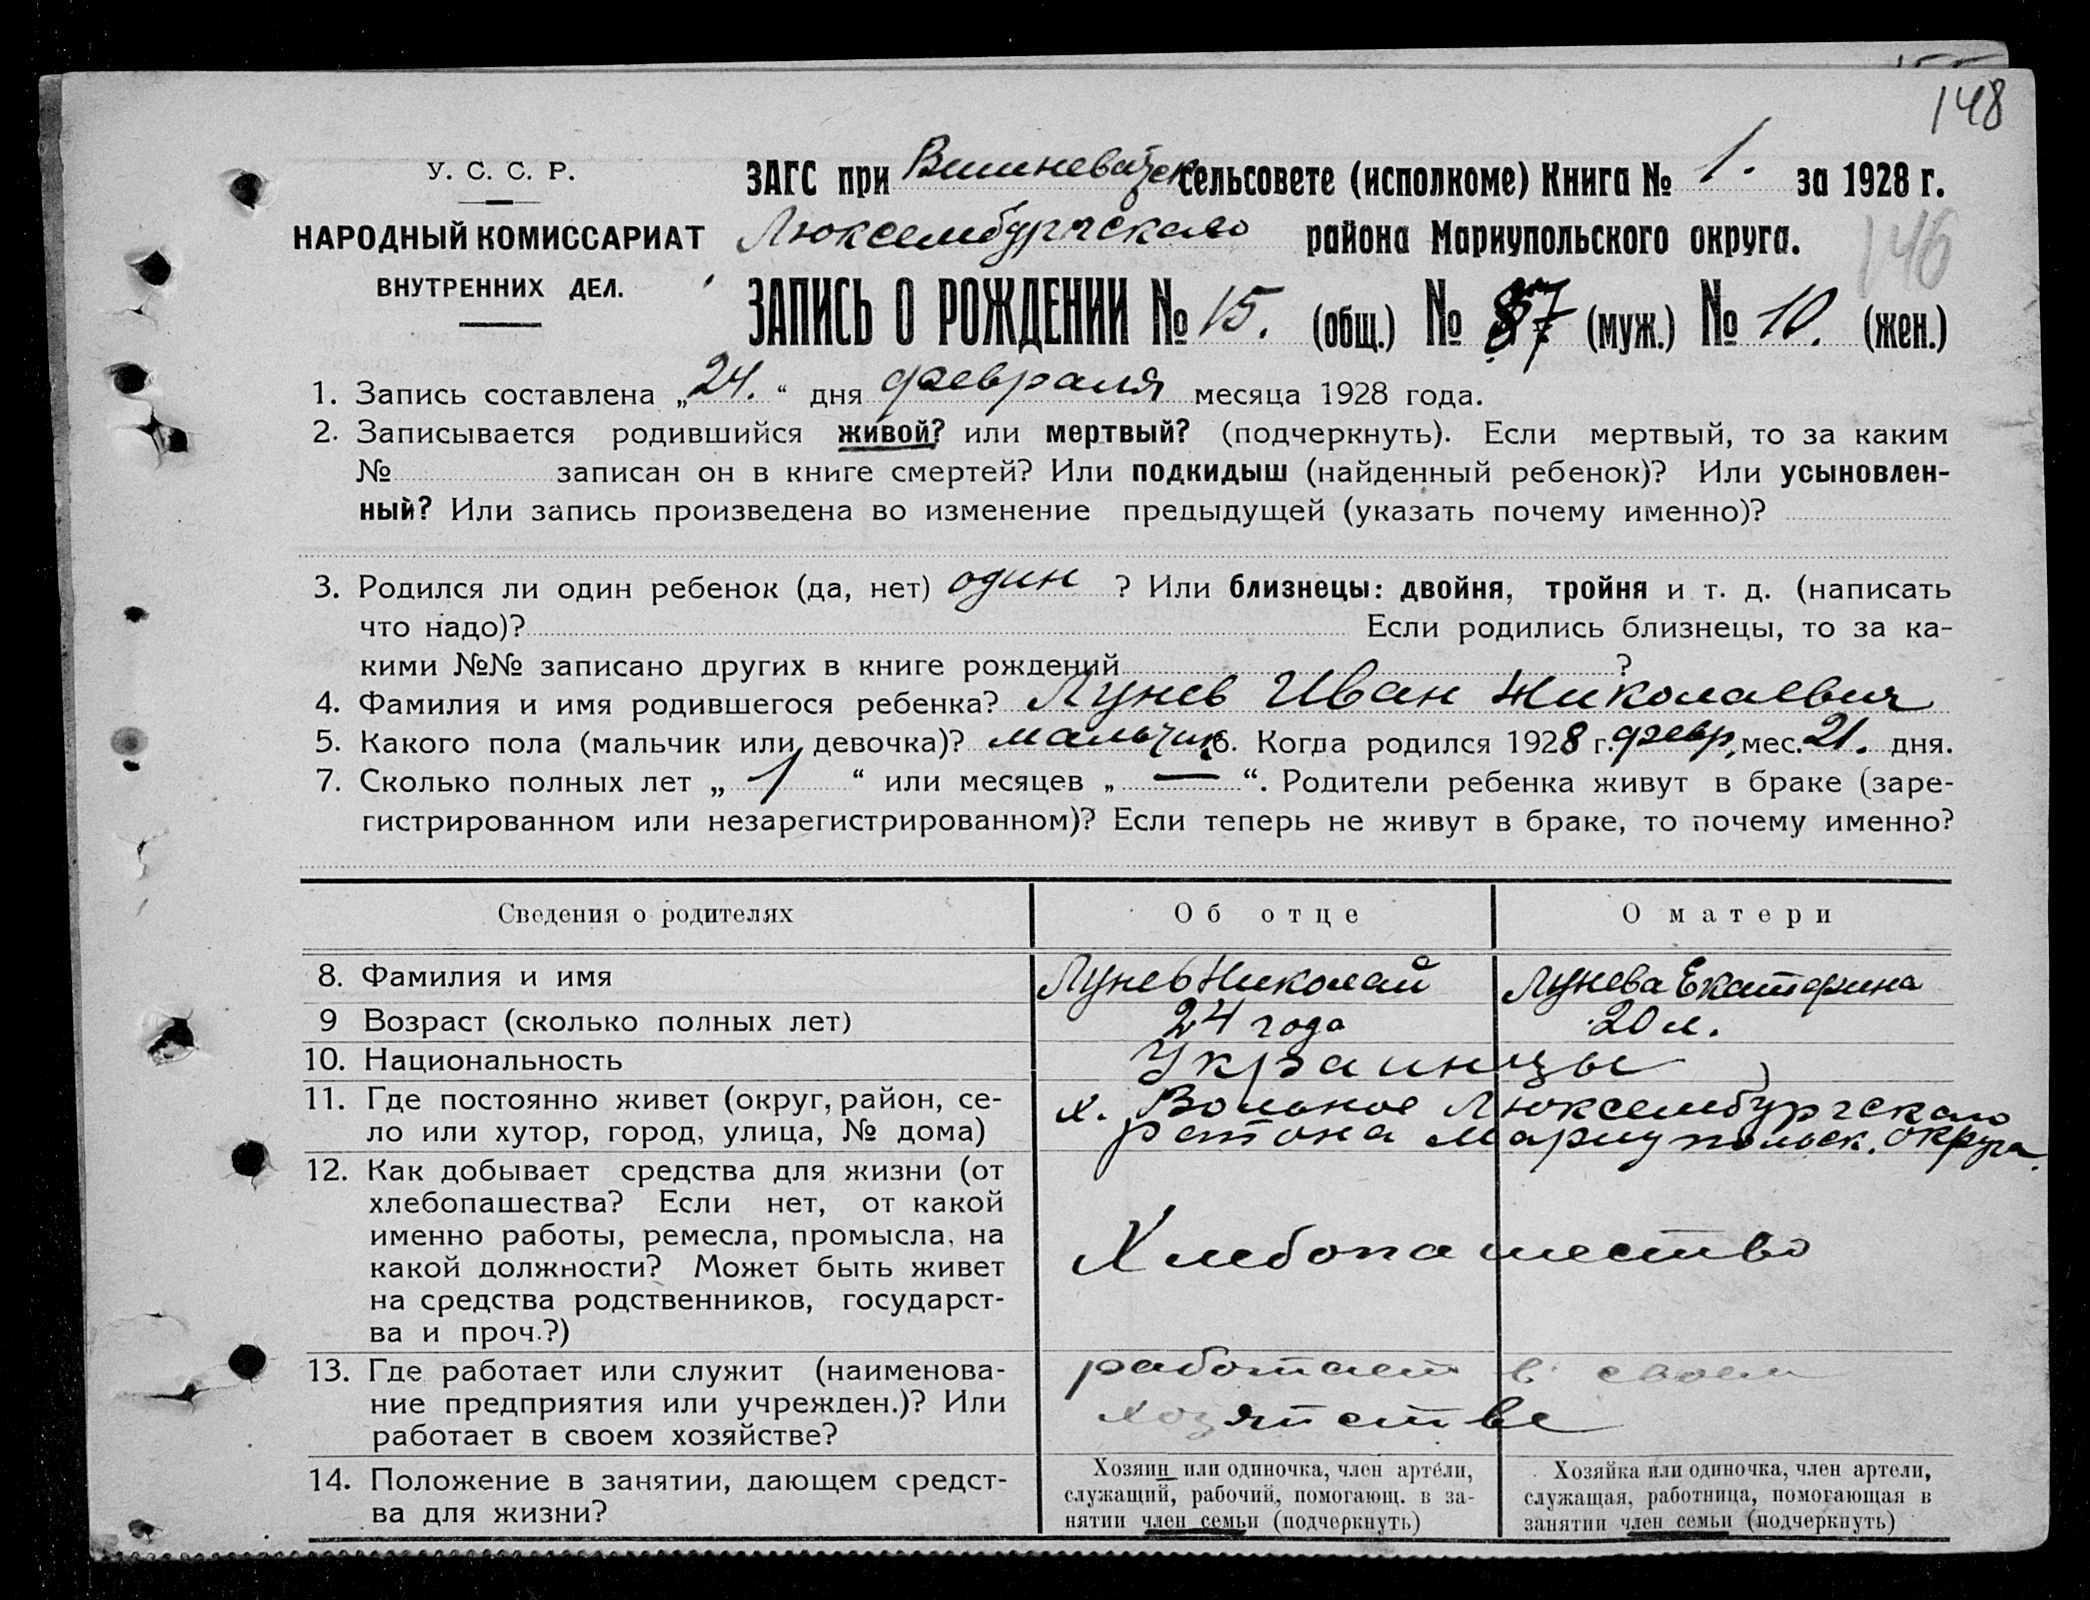 148
У. С. С. Р.
ЗАГС при Вишневатск сельсовете (исполкоме) Книга № 1. за 1928 г.
НАРОДНЫЙ КОМИССАРИАТ
Люксембургского района Мариупольского округа.
146
ВНУТРЕННИХ ДЕЛ.
ЗАПИСЬ О РОЖДЕНИИ № 15. (общ.) № 7 (муж.) № 10. (жен.)
1. Запись составлена „24.“ дня февраля месяца 1928 года.
2. Записывается родившийся живой? или мертвый? (подчеркнуть). Если мертвый, то за каким
№ записан он в книге смертей? Или подкидыш (найденный ребенок)? Или усыновлен-
ный? Или запись произведена во изменение предыдущей (указать почему именно)?
3. Родился ли один ребенок (да, нет) один ? Или близнецы: двойня, тройня и т. д. (написать
что надо)? Если родились близнецы, то за ка-
кими №№ записано других в книге рождений ?
4. Фамилия и имя родившегося ребенка? Лунев Иван Николаевич
5. Какого пола (мальчик или девочка)? мальчик 6. Когда родился 1928 г. февр. мес. 21. дня.
7. Сколько полных лет „ 1 “ или месяцев „ — “. Родители ребенка живут в браке (заре-
гистрированном или незарегистрированном)? Если теперь не живут в браке, то почему именно?
Сведения о родителях Об отце О матери
8. Фамилия и имя Лунев Николай Лунева Екатерина
9 Возраст (сколько полных лет) 24 года 20 л.
10. Национальность Украинцы
11. Где постоянно живет (округ, район, се- х. Вольное Люксембургского
ло или хутор, город, улица, № дома) района Мариупольск. округа.
12. Как добывает средства для жизни (от
хлебопашества? Если нет, от какой
именно работы, ремесла, промысла, на
какой должности? Может быть живет
на средства родственников, государст-
ва и проч.?)
Хлебопашество
13. Где работает или служит (наименова- работает в своем
ние предприятия или учрежден.)? Или хозяйстве
работает в своем хозяйстве?
14. Положение в занятии, дающем средст-
ва для жизни?
Хозяин или одиночка, член артели,
служащий, рабочий, помогающ. в за-
нятии член семьи (подчеркнуть)
Хозяйка или одиночка, член артели,
служащая, работница, помогающая в
занятии член семьи (подчеркнуть)